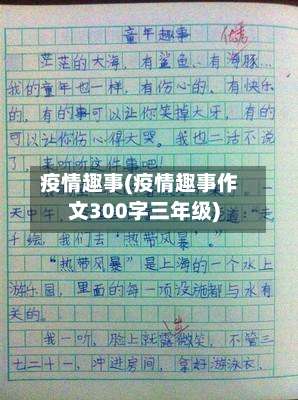 童年趣事
茫茫的大海,有鲨鱼、有海豚…
我的童年也一样,有伤心的、有快乐
的,有的事可以让你笑掉大牙,有的
可以让你伤心得大哭。我也二话不说
了,来听听这件事吧!
疫情趣事(疫情趣事作
文300字三年级)
天中午
道:“走
千绘,我们去“热带风暴”。”
“热带风暴”是上海的一个水上
游乐园,里面的每一项设施都与水有
关的。
我一听,脸上就露微笑,不管三
七二十一,冲进房间,拿好游泳衣、